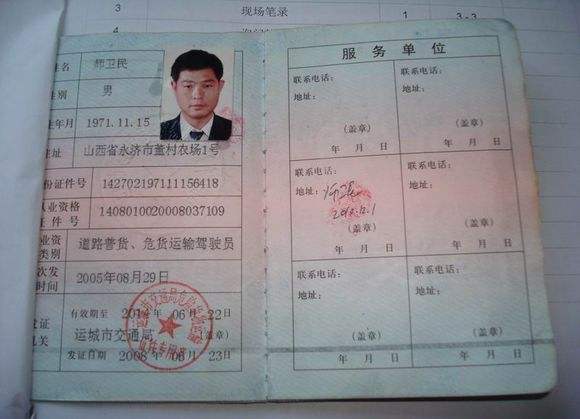 3
现场笔录
1
3-3
4
姓名
师卫民
性别
男
生年月
1971.11.15
住址
山西省永济市董村农场1号
身份证件号
142702197111156418
从业资格
证件号
1408010020008037109
从业资
格类别
道路普货、危货运输驾驶员
初次发
证时间
2005年08月29日
有效期至 2014 年 06 月 22 日
发证
机关
运城市交通局
(盖章)
发证日期 2008 年 06 月 23 日
服务单位
联系电话:
地址:
(盖章)
年 月 日
联系电话:
地址:
(盖章)
年 月 日
联系电话:
地址:
(盖章)
年 月 日
联系电话:
地址:
(盖章)
年 月 日
联系电话:
地址:
(盖章)
年 月 日
联系电话:
地址:
(盖章)
年 月 日